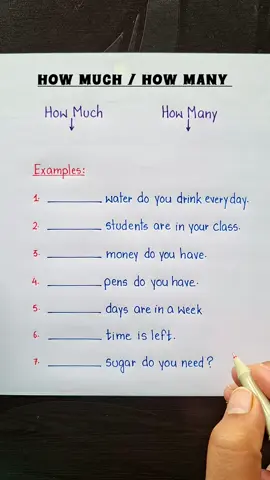 HOW MUCH / HOW MANY
How Much How Many
Examples:
1. ________ water do you drink everyday.
2. ________ students are in your class.
3. ________ money do you have.
4. ________ pens do you have.
5. ________ days are in a week
6. ________ time is left.
7. ________ sugar do you need?